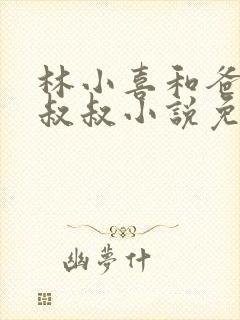 林小喜和爸
叔叔小說免
幽夢什